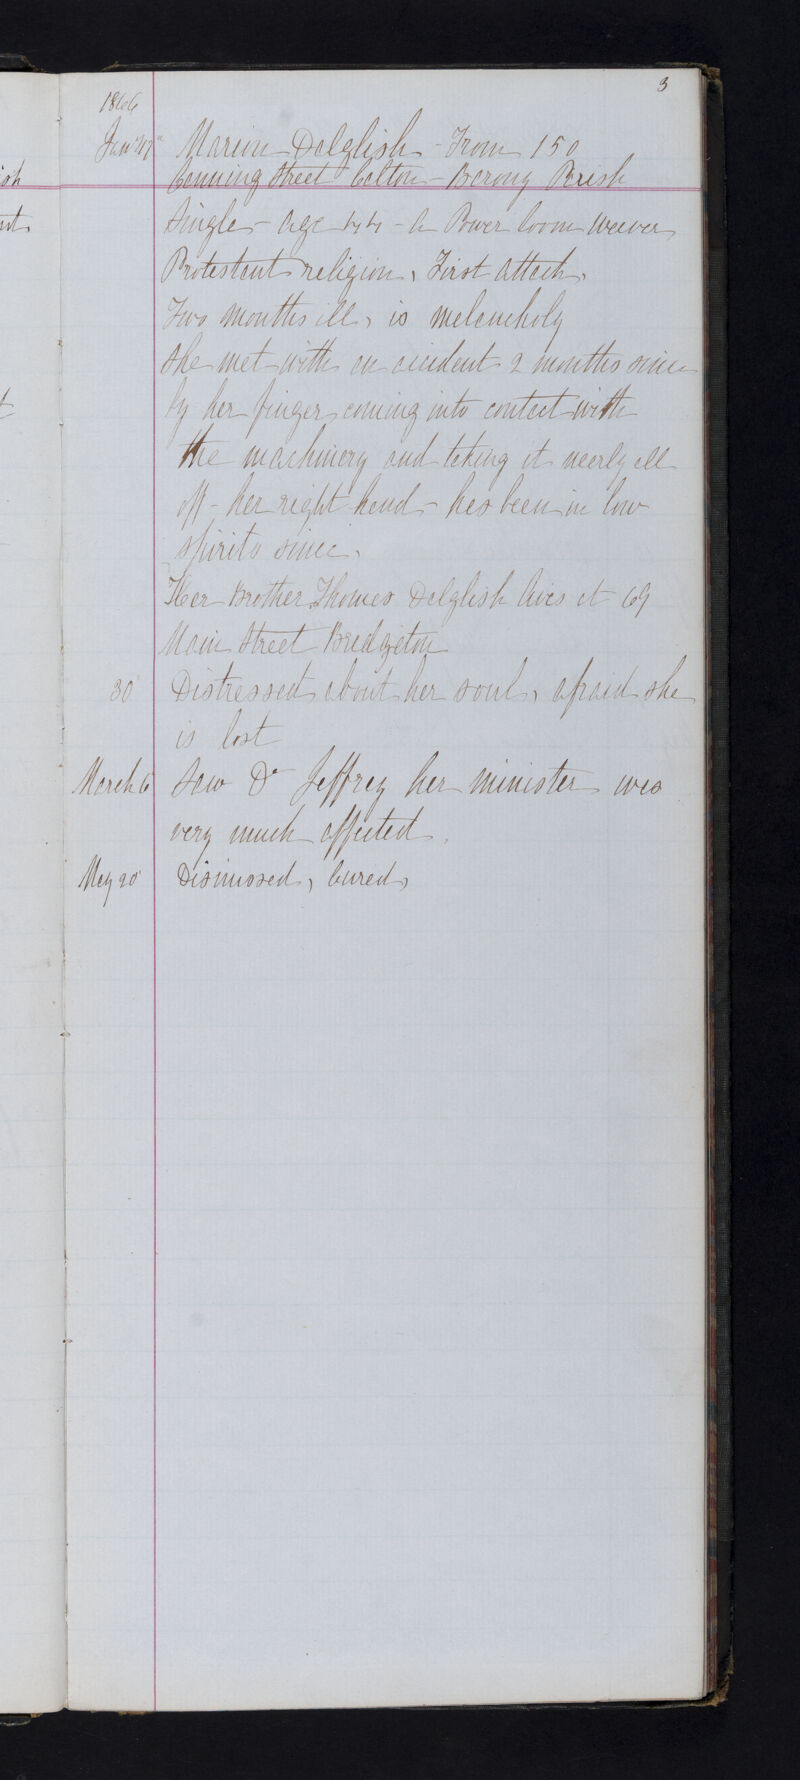 3
1866
Jan 27 Marion Dalglish - From 150
Canning Street Calton - Barony Parish
Single - age 44 - a Power loom weaver
Protestant religion, First attack,
Two months ill, is melancholy
She met with an accident 2 months since
by her finger coming into contact with
the machinery and taking it nearly all
off - her right hand - has been in low
spirits since.
Her Brother Thomas Dalglish lives at 69
Main Street Bridgeton
30 Distressed about her soul, afraid she
is lost
March 6 Saw Dr Jeffrey her minister was
very much affected.
May 20 Dismissed, Cured,